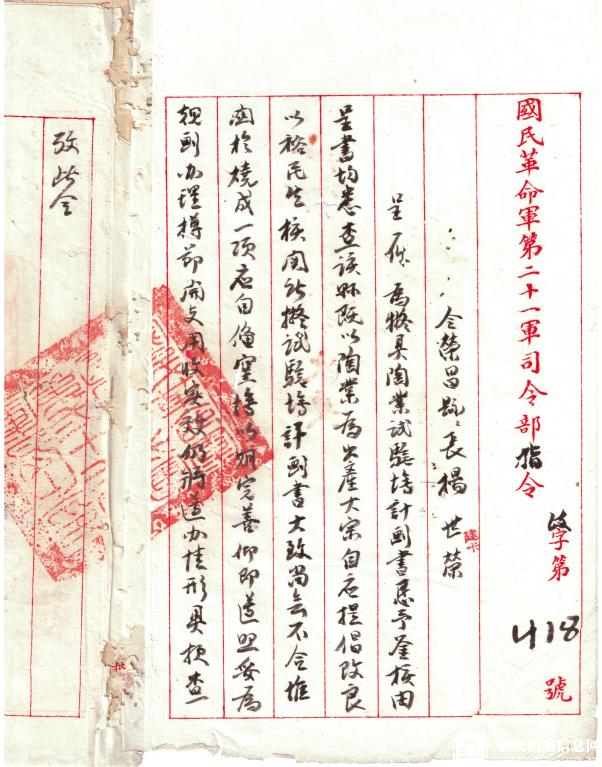 國民革命軍第二十一軍司令部指令
字第418號
令榮昌縣縣長楊世榮
呈一件為擬具陶業試驗場計劃書懇予鑒核由
呈書均悉查該縣既以陶業為出產大宗自應提倡改良
以裕民生核閱所擬試驗場計劃書大致尚無不合惟
關於燒成一項應自備窰場以期完善仰即遵照妥為
規劃办理撙節開支用收實效仍將遵办情形具報查
攷此令